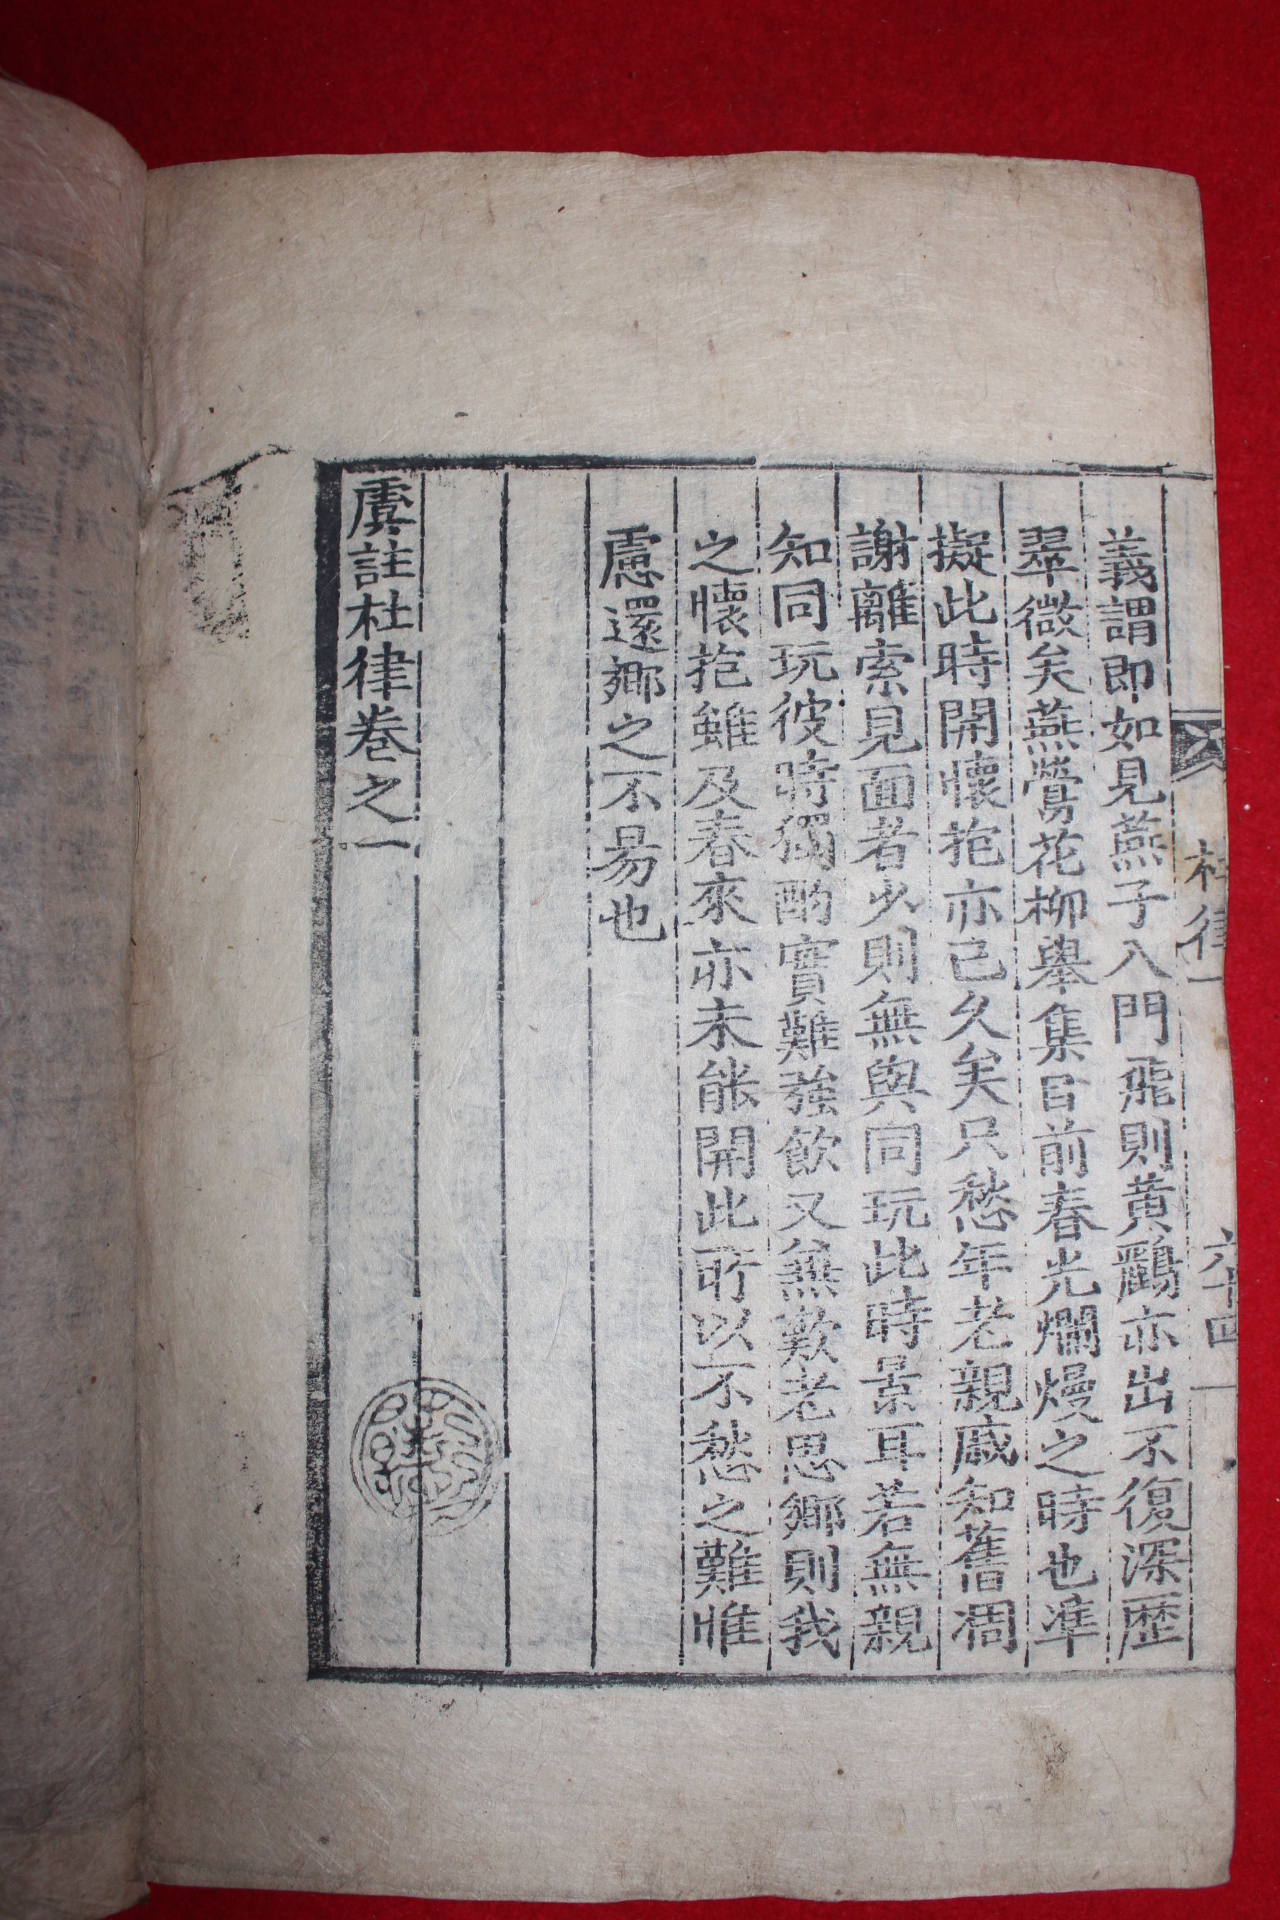 義謂即如見燕子入門飛則黃鸝亦出不復深歷
翠微矣燕鶯花柳舉集目前春光爛熳之時也準
擬此時開懷抱亦已久矣只愁年老親戚知舊凋
謝離索見面者少則無與同玩此時景耳若無親
知同玩彼時獨酌實難強飲又無歎老思鄉則我
之懷抱雖及春來亦未能開此所以不愁之難惟
慮還鄉之不易也
虞註杜律卷之一
杜律一
六十四